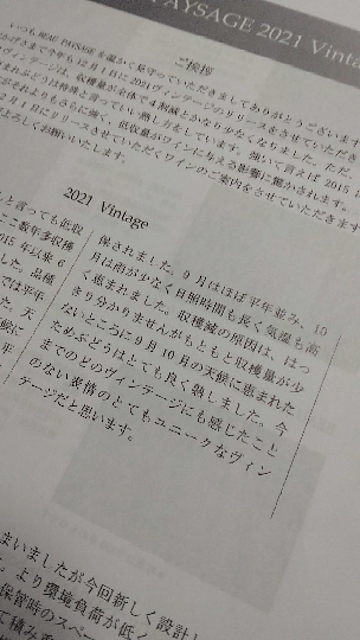 PAYSAGE 2021 Vinta
ご挨拶
いつも BEAU PAYSAGE を温かく見守っていただきましてありがとうございます
かげさまで今年も12月1日に2021ヴィンテージのリリースをさせていただき
ヴィンテージは、収穫量が全体で4割減とかなり少なくなりました。ただ、
まれぶどうは特殊と言っていい熟し方をしています。強いて言えば 2015
がそれよりもさらに強く、低収量がワインに与える影響に驚かされます。
2月1日にリリースさせていただくワインのご案内をさせていただきます
よろしくお願いいたします。
2021 Vintage
と言っても低収
ここ数年多収穫
015 年以来 6
した。品種
では平年
た。天
候に
平
保されました。9 月はほぼ平年並み、10
月は雨が少なく日照時間も長く気温も高
く恵まれました。収穫減の原因は、はっ
きり分かりませんがもともと収穫量が少
ないところに9月10月の天候に恵まれた
ためぶどうはとても良く熟しました。今
までのどのヴィンテージにも感じたこと
のない表情のとてもユニークなヴィン
テージだと思います。
まいましたが今回新しく設計し
より環境負荷が低く
保管時のスペー
て積み重